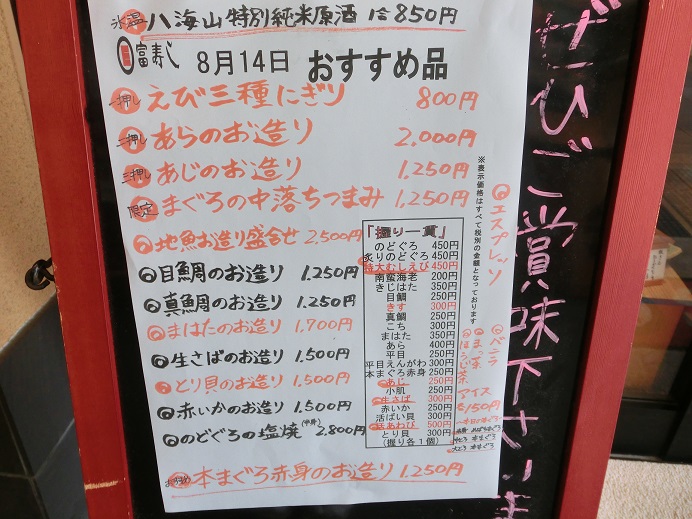 氷温 八海山 特別純米原酒 1合850円
富寿し 8月14日 おすすめ品
一押し えび三種にぎり 800円
二押し あらのお造り 2,000円
三押し あじのお造り 1,250円
限定 まぐろの中落ちつまみ 1,250円
地魚お造り盛合せ 2,500円
目鯛のお造り 1,250円
真鯛のお造り 1,250円
まはたのお造り 1,700円
生さばのお造り 1,500円
とり貝のお造り 1,500円
赤いかのお造り 1,500円
のどぐろの塩焼(半身) 2,800円
本まぐろ赤身のお造り 1,250円
「握り一貫」
のどぐろ 450円
炙りのどぐろ 450円
特大むしえび 450円
南蛮海老 200円
きじはた 350円
目鯛 250円
きす 300円
真鯛 250円
こち 300円
まはた 350円
あら 400円
平目 250円
平目えんがわ 300円
本まぐろ赤身 250円
あじ 250円
小肌 250円
生さば 300円
赤いか 250円
活ばい貝 300円
活あわび 500円
とり貝 300円
(握り各1個)
※表示価格はすべて税別の金額となっております
エスプレッソ
バニラ
まっ茶
ほうじ茶
アイス
各150円
ぜひご賞味下さいま